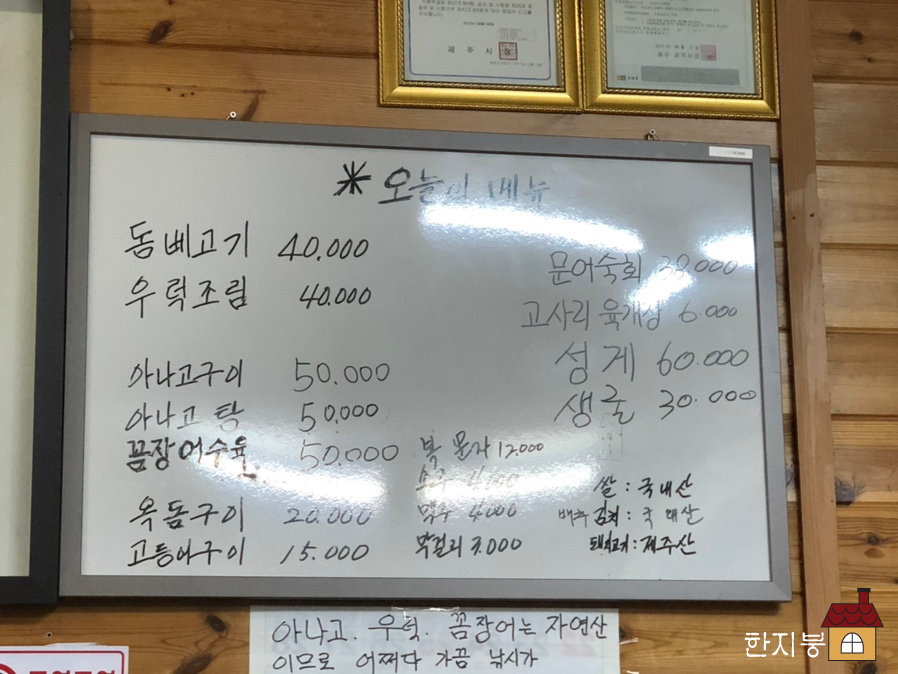 제주시
* 오늘의 메뉴
돔베고기 40.000
우럭조림 40.000
아나고구이 50.000
아나고 탕 50.000
꼼장어수육 50.000
옥돔구이 20.000
고등어구이 15.000
문어숙회
고사리 육개장 6.000
성게 60.000
생굴 30.000
복문자 12.000
소주
맥주 4.000
막걸리 3.000
쌀 : 국내산
배추김치 : 국내산
돼지고기 : 제주산
아나고. 우럭. 꼼장어는 자연산
이므로 어쩌다 가끔 낚시가
한지붕